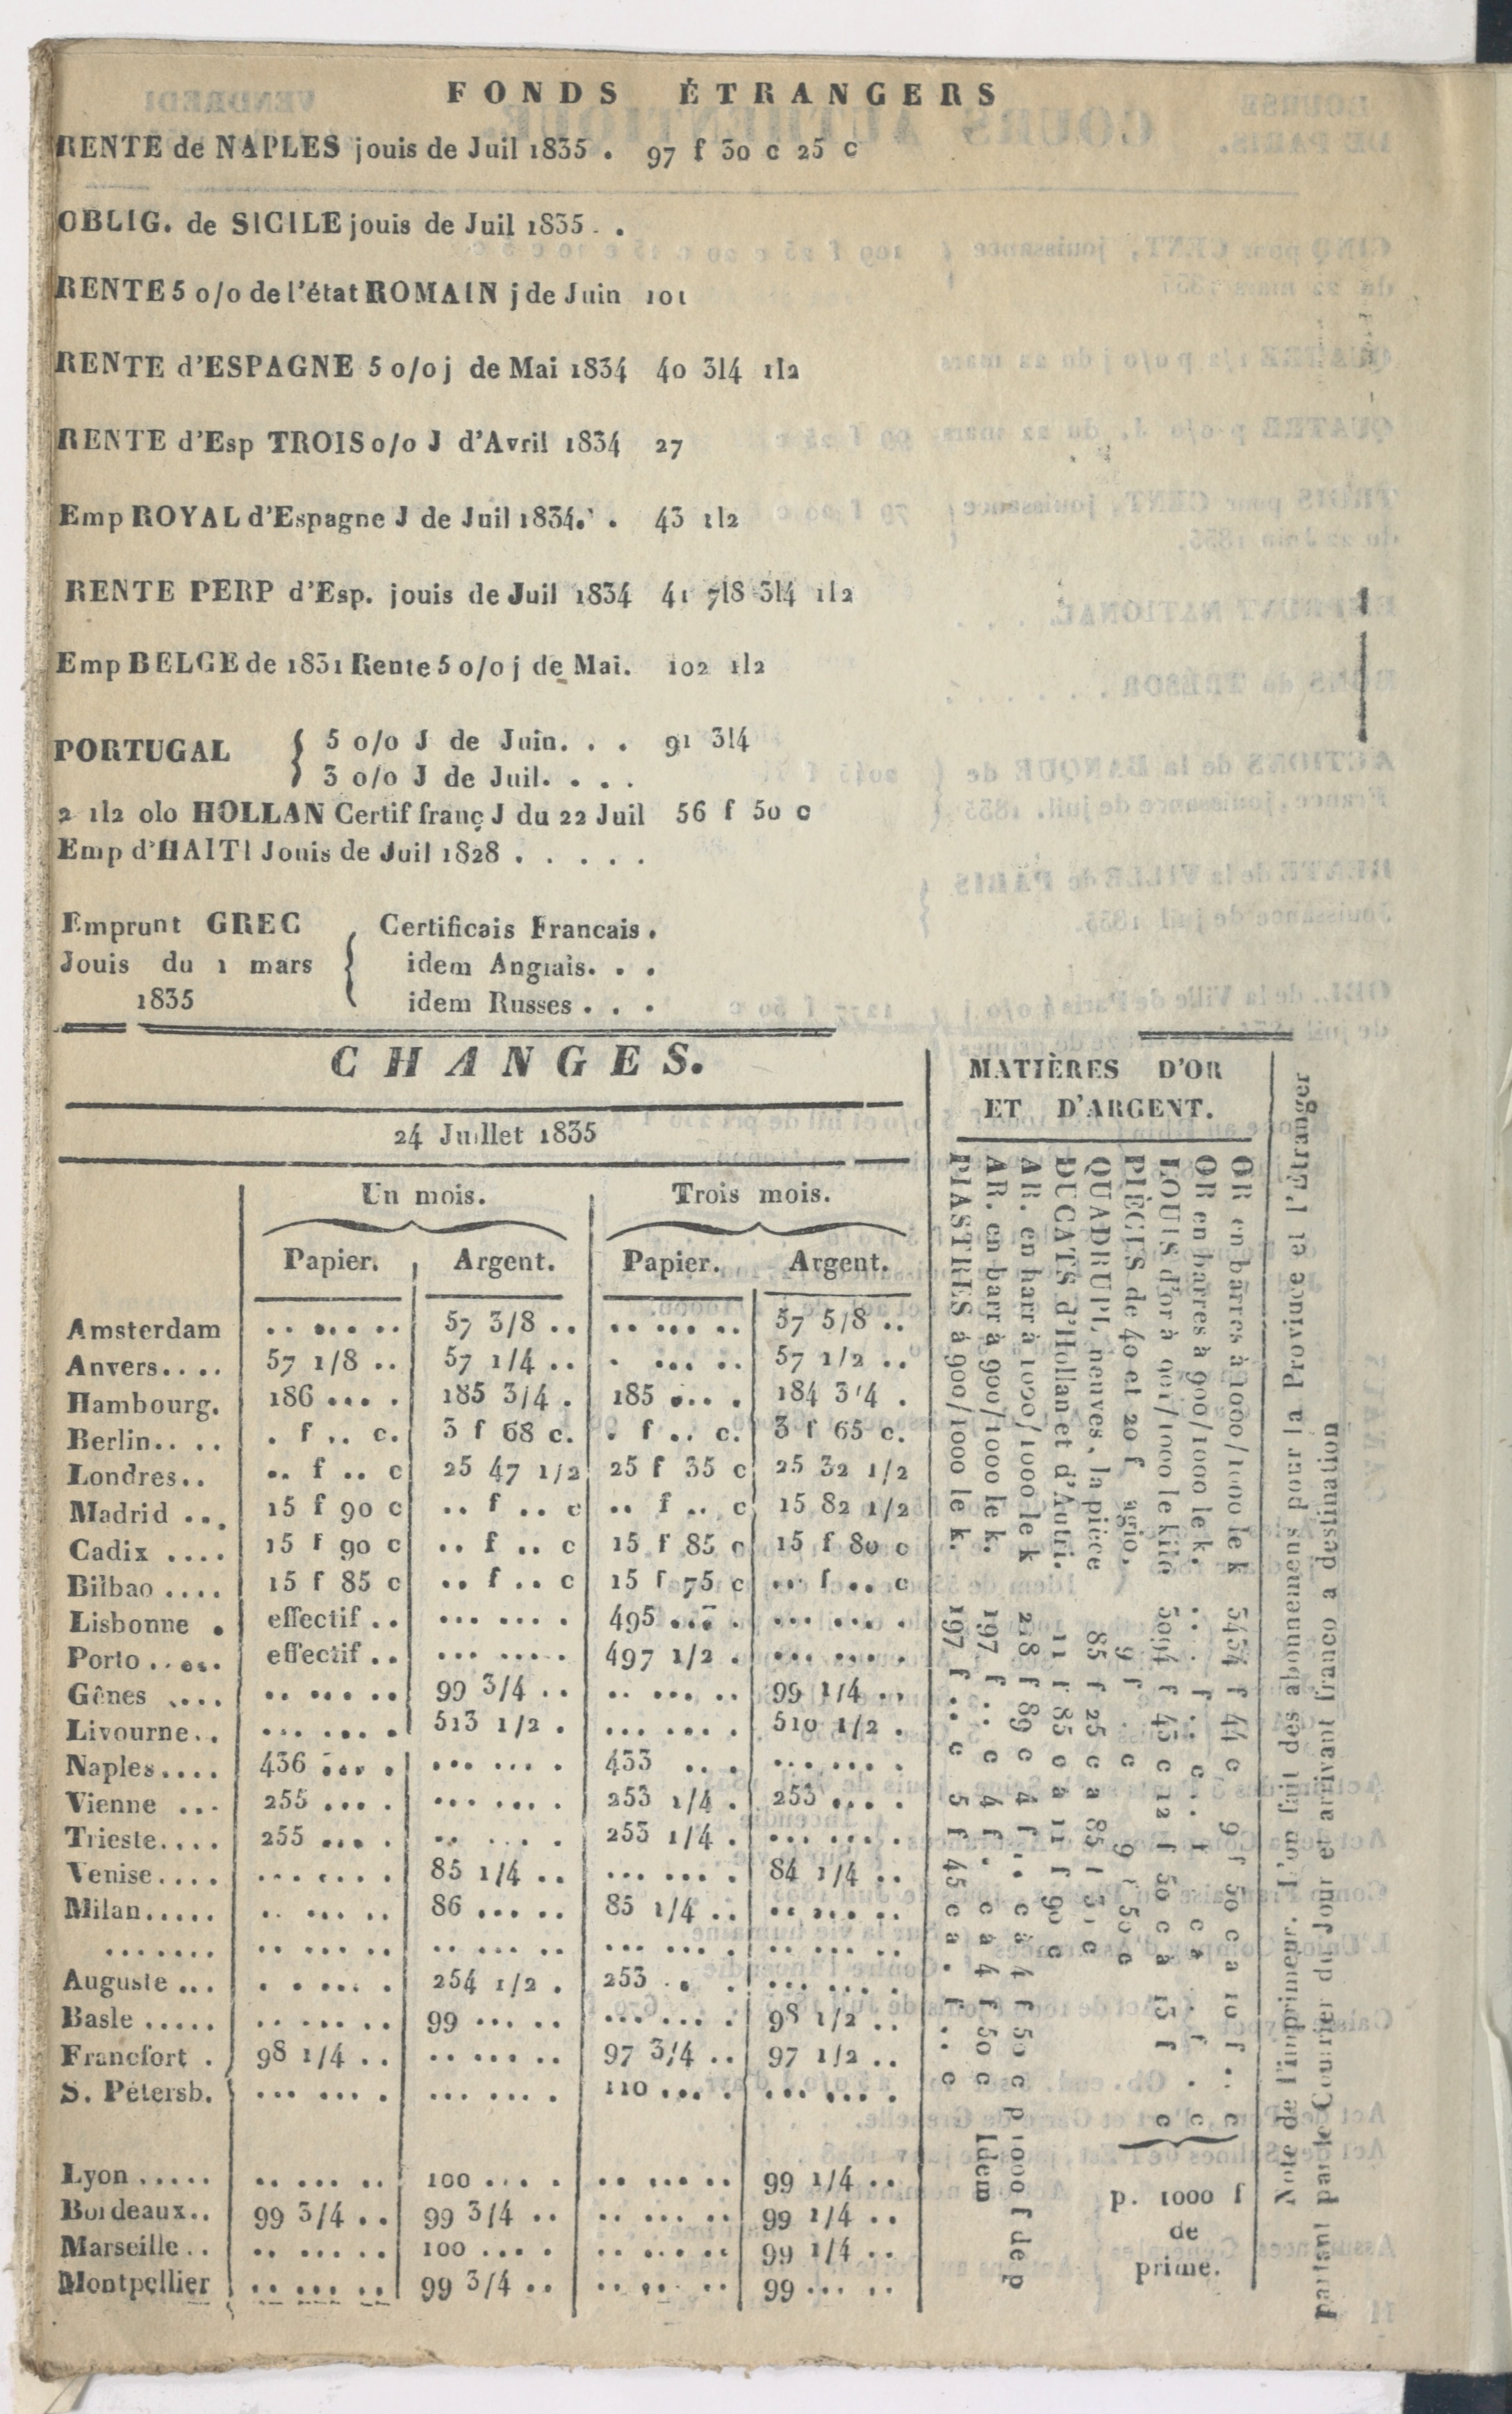 FONDS ÉTRANGERS
RENTE de NAPLES jouis de Juil 1835 . 97 f 30 c 25 c
OBLIG. de SICILE jouis de Juil 1835 . .
RENTE 5 o/o de l'état ROMAIN j de Juin 101
RENTE d'ESPAGNE 5 o/o j de Mai 1834 40 3l4 1l2
RENTE d'Esp TROIS o/o J d'Avril 1834 27
Emp ROYAL d'Espagne J de Juil 1834. . 43 1l2
RENTE PERP d'Esp. jouis de Juil 1834 41 7l8 3l4 1l2
Emp BELGE de 1831 Rente 5 o/o j de Mai. 102 1l2
PORTUGAL { 5 o/o J de Juin. . . 91 3l4
3 o/o J de Juil. . . .
2 1l2 olo HOLLAN Certif franç J du 22 Juil 56 f 50 c
Emp d'HAITI Jouis de Juil 1828 . . . . .
Emprunt GREC { Certificais Francais .
Jouis du 1 mars idem Anglais. . .
1835 idem Russes . . .
CHANGES.
24 Juillet 1835
Un mois. Trois mois.
Papier. Argent. Papier. Argent.
Amsterdam .. ... .. 57 3/8 .. .. ... .. 57 5/8 ..
Anvers.... 57 1/8 .. 57 1/4 .. . ... .. 57 1/2 ..
Hambourg. 186 ... . 185 3/4 . 185 ... . 184 3/4 .
Berlin.. .. . f .. c. 3 f 68 c. . f .. c. 3 f 65 c.
Londres.. .. f .. c 25 47 1/2 25 f 35 c 25 32 1/2
Madrid ... 15 f 90 c .. f .. c .. f .. c 15 82 1/2
Cadix .... 15 f 90 c .. f .. c 15 f 85 c 15 f 80 c
Bilbao .... 15 f 85 c .. f .. c 15 f 75 c ... f .. c
Lisbonne . effectif .. ... ... . 495 ... . ... ... .
Porto ..... effectif .. ... ... .. 497 1/2 . ... ... .
Gênes .... .. ... .. 99 3/4 .. .. ... .. 99 1/4 ..
Livourne.. ... ... . 513 1/2 . ... ... . 510 1/2 .
Naples.... 436 ... . ... ... . 433 ... . ... ... .
Vienne ... 255 ... . ... ... . 253 1/4 . 253 ... .
Trieste.... 255 ... . .. . . . 253 1/4 . ... ... .
Venise.... ... ... . 85 1/4 .. ... ... . 84 1/4 ..
Milan..... .. ... .. 86 ... .. 85 1/4 .. .. ... ..
....... .. ... .. .. ... .. ... ... . .. ... ..
Auguste ... . . ... . 254 1/2 . 253 . . . ... ... .
Basle ..... .. ... .. 99 ... .. ... ... . 98 1/2 ..
Francfort . 98 1/4 .. .. ... .. 97 3/4 .. 97 1/2 ..
S. Pétersb. ... ... . ... ... . 110 ... . ... ... .
Lyon ..... .. ... .. 100 ... . .. ... .. 99 1/4 ..
Bordeaux.. 99 3/4 .. 99 3/4 .. .. ... .. 99 1/4 ..
Marseille .. .. ... .. 100 .... .. ... .. 99 1/4 ..
Montpellier .. ... .. 99 3/4 .. .. ... .. 99 ... ..
MATIÈRES D'OR
ET D'ARGENT.
OR en barres à 1000/1000 le k 5454 f 44 c 9 f 50 c a 10 f .. c
OR en barres à 900/1000 le k. . . f .. c . . f . c a . . f . c
LOUIS d'or à 901/1000 le kilo 5094 f 45 c 12 f 50 c à 15 f c
PIÈCES de 40 et 20 f agio. 9 f . c 9 f 50 c
QUADRUPL neuves, la pièce 85 f 25 c a 85 f c
DUCATS d'Hollan et d'Autri. 11 f 85 c a 11 f 90 c
AR. en barr à 1000/1000 le k 218 f 89 c 4 f .. c à 4 f 50 c p 1000 f de p
AR. en barr à 900/1000 le k. 197 f .. c 4 f . c à 4 f 50 c Idem
PIASTRES à 900/1000 le k. 197 f .. c 5 f 45 c a . f .. c
p. 1000 f
de
prime.
Note de l'imprimeur. L'on fait des abonnemens pour la Province et l'Étranger
partant par le Courier du Jour et arrivant franco a destination